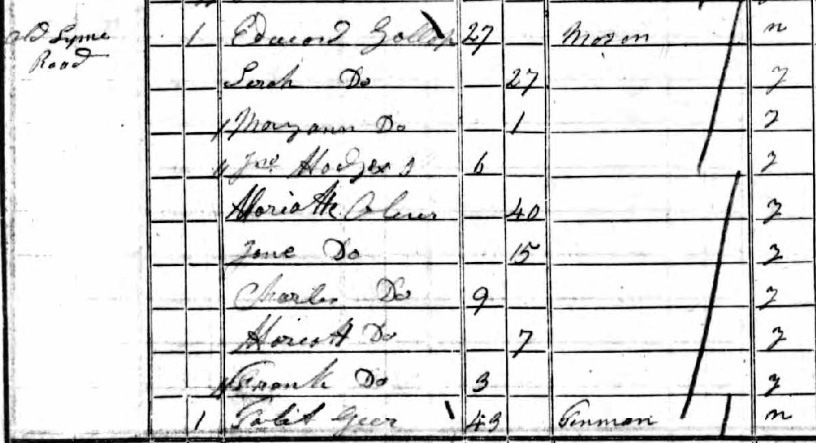 Old Lyme 1 Edward Gollop 27 Mason n
Road
Sarah Do 27 y
Maryann Do 1 y
Jno Hodges 6 y
40 y
Jane Do 15 y
Charles Do 9 y
Do 7 y
Frank Do 3 y
1 Geer 43 n